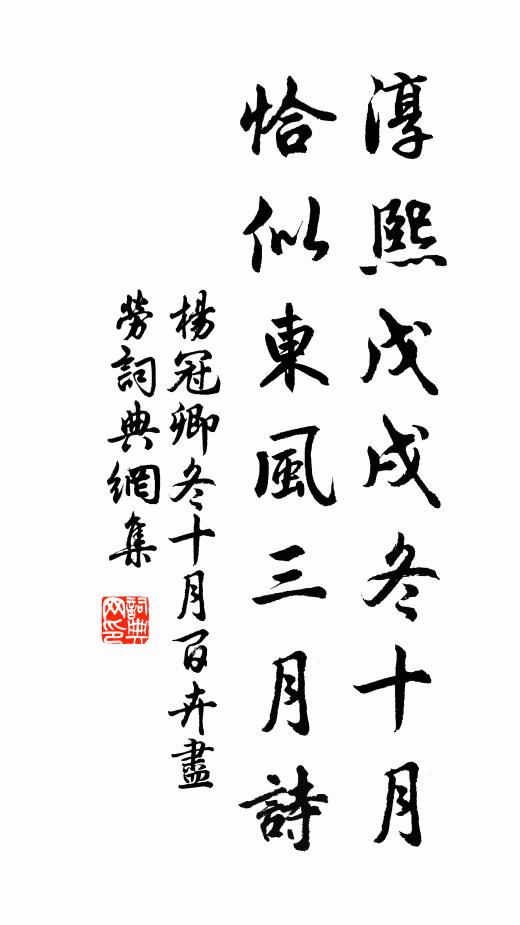 淳熙戊戌冬十月
恰似東風三月詩
楊冠卿冬十月百卉盡
勞詞典網集
詞典
网印